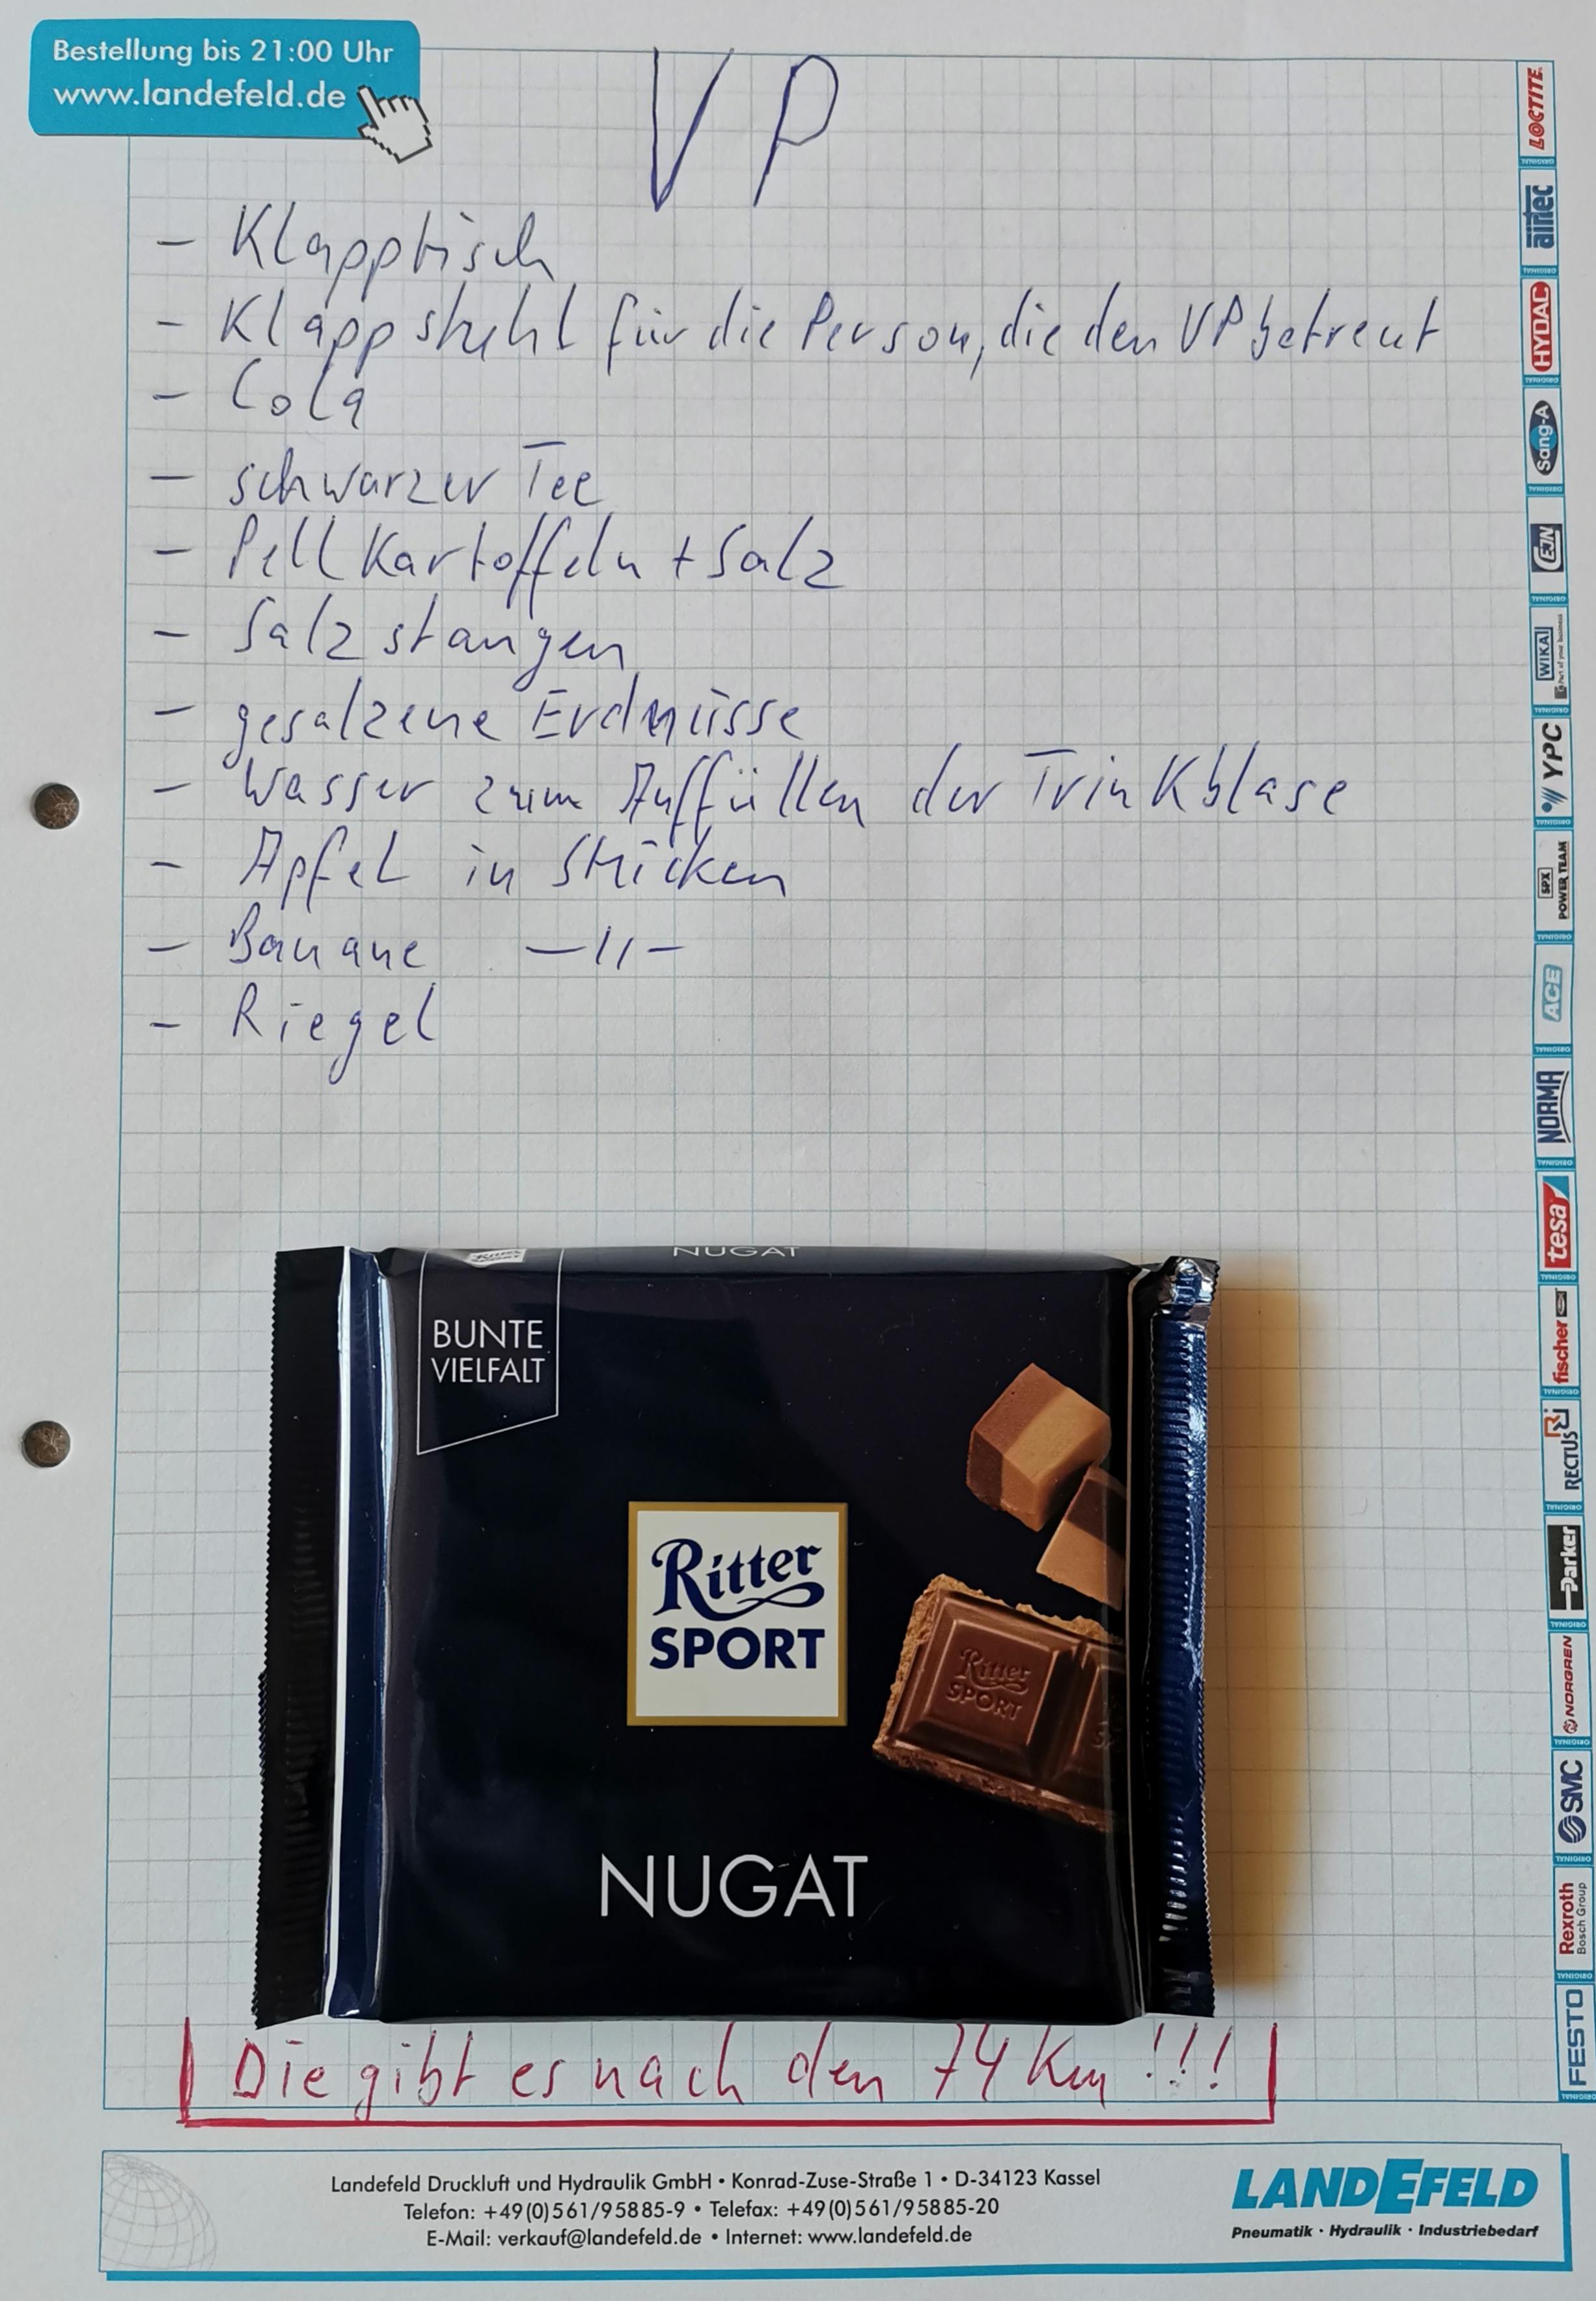 Bestellung bis 21:00 Uhr
www.landefeld.de
VP
- Klapptisch
- Klappstuhl für die Person, die den VP betreut
- Cola
- schwarzer Tee
- Pellkartoffeln + Salz
- Salzstangen
- gesalzene Erdnüsse
- Wasser zum Auffüllen der Trinkblase
- Apfel in Stücken
- Banane —//—
- Riegel
NUGAT
BUNTE
VIELFALT
Ritter
SPORT
Ritter
SPORT
NUGAT
Die gibt es nach den 74 Km!!!
LOCTITE
airtec
HYDAC
Sang-A
EJN
WIKA
Part of your business
YPC
SPX
POWER TEAM
ACE
NORMA
tesa
fischer
RECTUS
Parker
NORGREN
SMC
Rexroth
Bosch Group
FESTO
Landefeld Druckluft und Hydraulik GmbH • Konrad-Zuse-Straße 1 • D-34123 Kassel
Telefon: +49(0)561/95885-9 • Telefax: +49(0)561/95885-20
E-Mail: verkauf@landefeld.de • Internet: www.landefeld.de
LANDEFELD
Pneumatik · Hydraulik · Industriebedarf